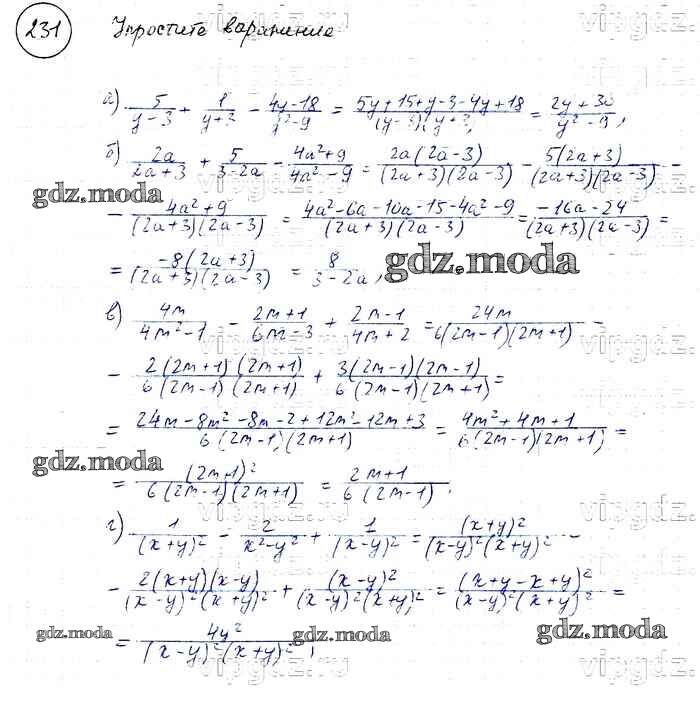 231 Упростите выражение
а) 5/(y-3) + 1/(y+3) - (4y-18)/(y²-9) = (5y+15+y-3-4y+18)/((y-3)(y+3)) = (2y+30)/(y²-9),
б) 2a/(2a+3) + 5/(3-2a) - (4a²+9)/(4a²-9) = 2a(2a-3)/((2a+3)(2a-3)) - 5(2a+3)/((2a+3)(2a-3)) -
gdz.moda
- (4a²+9)/((2a+3)(2a-3)) = (4a²-6a-10a-15-4a²-9)/((2a+3)(2a-3)) = (-16a-24)/((2a+3)(2a-3)) =
= -8(2a+3)/((2a+3)(2a-3)) = 8/(3-2a),
gdz.moda
в) 4m/(4m²-1) - (2m+1)/(6m-3) + (2m-1)/(4m+2) = 24m/(6(2m-1)(2m+1)) -
- 2(2m+1)(2m+1)/(6(2m-1)(2m+1)) + 3(2m-1)(2m-1)/(6(2m-1)(2m+1)) =
= (24m-8m²-8m-2+12m²-12m+3)/(6(2m-1)(2m+1)) = (4m²+4m+1)/(6(2m-1)(2m+1)) =
gdz.moda
= (2m+1)²/(6(2m-1)(2m+1)) = (2m+1)/(6(2m-1)).
г) 1/(x+y)² - 2/(x²-y²) + 1/(x-y)² = (x+y)²/((x-y)²(x+y)²) -
- 2(x+y)(x-y)/((x-y)²(x+y)²) + (x-y)²/((x-y)²(x+y)²) = (x+y-x+y)²/((x-y)²(x+y)²) =
gdz.moda gdz.moda gdz.moda
= 4y²/((x-y)²(x+y)²),